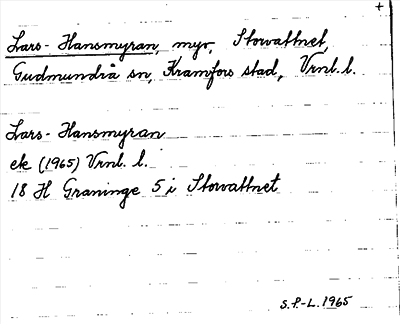 +
Lars-Hansmyran, myr, Storvattnet,
Gudmundrå sn, Kramfors stad, Vrnl. l.
Lars-Hansmyran
ek (1965) Vrnl. l.
18 H Graninge 5 i Storvattnet
S.P.-L. 1965